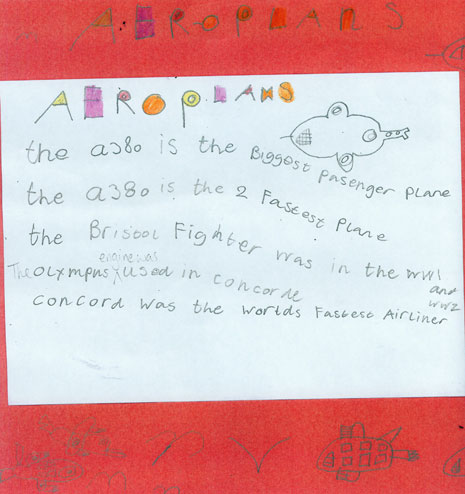 AEROPLANS
AEROPLANS
the a380 is the Biggest Pasenger Plane
the a380 is the 2 Fastest Plane
the Bristol Fighter was in the ww1
and
ww2
engine was
The OLYMPUS used in concorde
concord was the worlds Fastest Airliner